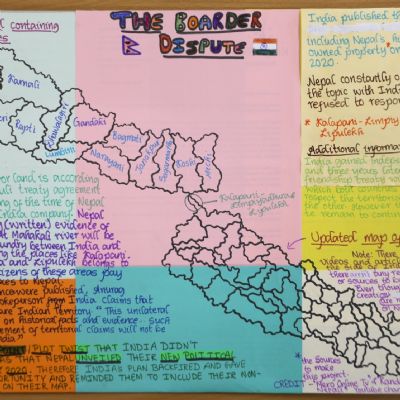 THE BOARDER
DISPUTE
l containing
es
Karnali
Rapti
Dhawalagiri
Lumbini
Gandaki
Bagmati
Narayani
Janakpur
Sagarmatha
Koshi
Mechi
Kalapani-
Limpiyadhura
Lipulekh
or land is according
uli treaty agreement
ng of the time of Nepal
India company. Nepal
(written) evidence of
at Mahakali river will be
undry between India and
g the places like Kalapani,
a and Lipulekh belongs to
itizens of these areas pay
axes to Nepal.
nce were published, Anurag
okeperson from India claims that
are Indian Territory "This unilateral
on historical facts and evidence. Such
ement of territorial claims will not be
dia"
PLOT TWIST THAT INDIA DIDN'T
IS THAT NEPAL UNVEILED THEIR NEW POLITICAL
2020. THEREFORE INDIA'S PLAN BACKFIRED AND GAVE
PORTUNITY AND REMINDED THEM TO INCLUDE THEIR NON-
ON THEIR MAP.
India published t
including Nepal's
owned property on
2020.
Nepal constantly
the topic with Indi
refused to respon
* Kalapani-Limpiy
Lipulekh
Additional informa
India gained indepe
and three years later
friendship treaty
which both countries
respect the territories
the other
to remain
Updated map of
Note: There
videos and article
the side
aren't any re
or sources to
Even tho
creating
the sources
to make
this project.
CREDIT - "Hero Online Tv"
Youtube chan